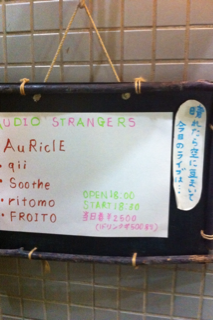 UDIO STRANGERS
AuRiclE
・qii
・Soothe
・ritomo
・FROITO
OPEN 18:00
START 18:30
当日券¥2500
(ドリンク代500円)
晴れたら空に豆まいて
今日のライブは…